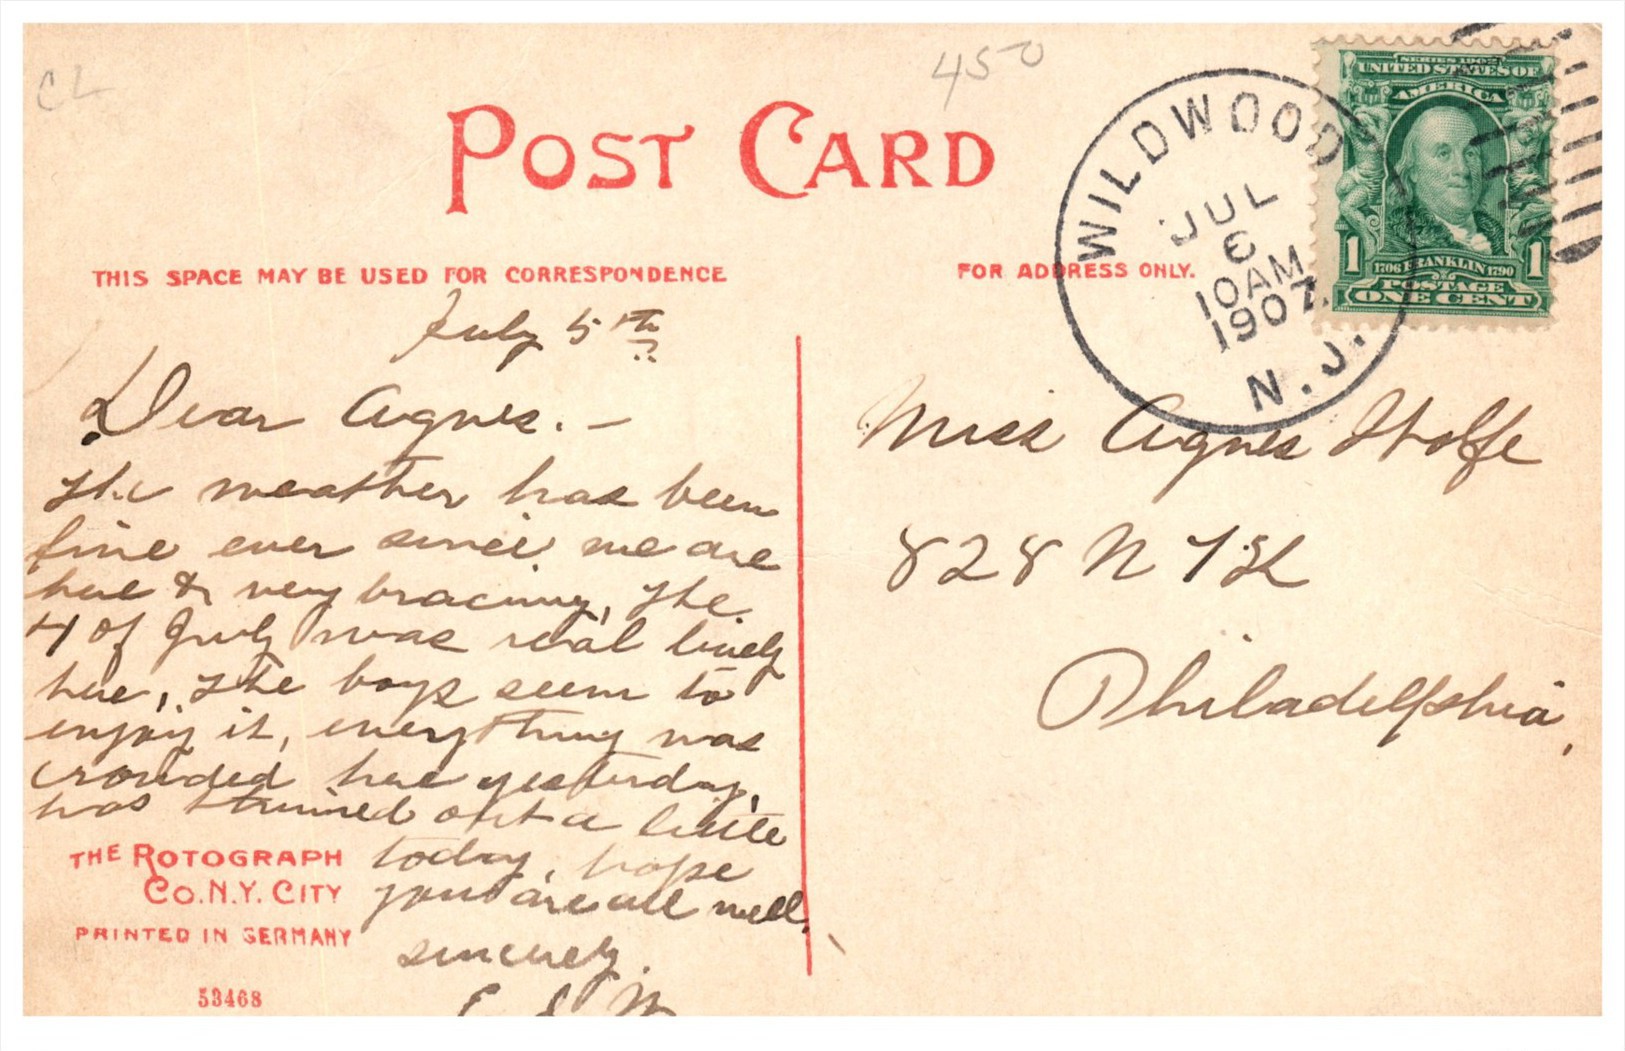 CL
450
POST CARD
SERIES 1902
UNITED STATES OF
AMERICA
1 1
1706 FRANKLIN 1790
POSTAGE
ONE CENT
WILDWOOD
JUL
6
10 AM
1907
N.J.
THIS SPACE MAY BE USED FOR CORRESPONDENCE
FOR ADDRESS ONLY.
July 5th
Dear Agnes. -
The weather has been
fine ever since we are
here & very bracing, The
4 of July was real lively
here, The boys seem to
enjoy it, everything was
crowded here yesterday,
has thinned out a little
today, hope
you are all well,
sincerely.
Miss Agnes Wolfe
828 N 7 St
Philadelphia,
THE ROTOGRAPH
CO. N.Y. CITY
PRINTED IN GERMANY
53468